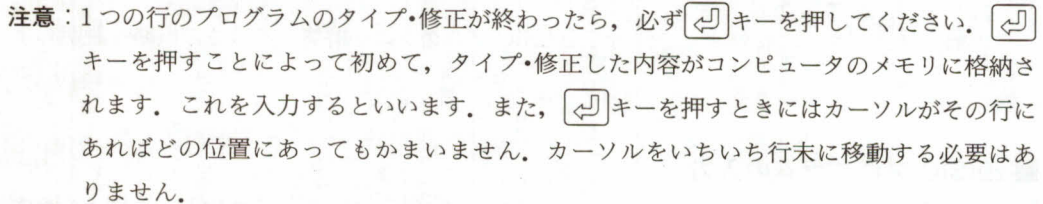 注意：1つの行のプログラムのタイプ•修正が終わったら，必ず⏎キーを押してください．⏎
キーを押すことによって初めて，タイプ•修正した内容がコンピュータのメモリに格納さ
れます．これを入力するといいます．また，⏎キーを押すときにはカーソルがその行に
あればどの位置にあってもかまいません．カーソルをいちいち行末に移動する必要はあ
りません．